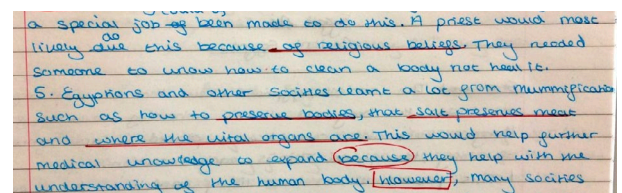 a special job of been made to do this. A priest would most
lively due do this because of religious beliefs. They needed
someone to know how to clean a body not heal it.
5. Egyptions and other socities learnt a lot from mummification
such as how to preserve bodies, that salt preserves meat
and where the vital organs are. This would help further
medical knowledge to expand because they help with the
understanding of the human body. However, many socities